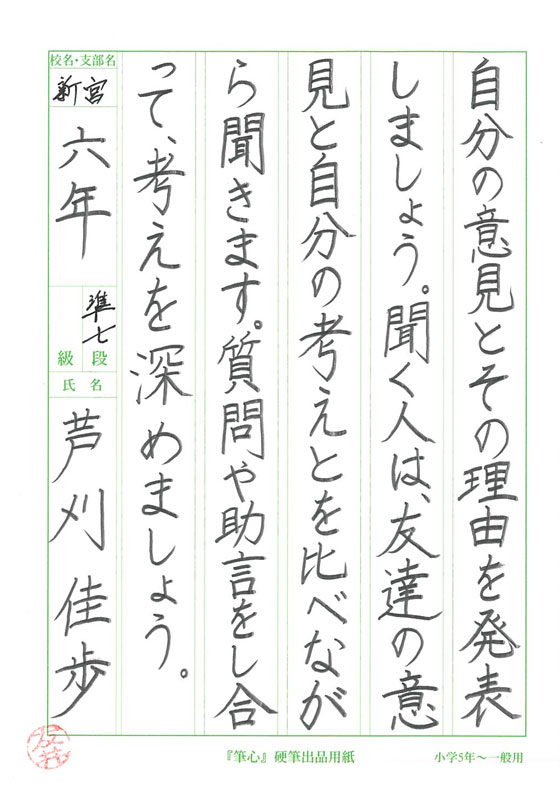 自分の意見とその理由を発表
しましょう。聞く人は、友達の意
見と自分の考えとを比べなが
ら聞きます。質問や助言をし合
って、考えを深めましょう。
校名・支部名
新宮
六年
準七
級段
氏名
芦刈佳歩
『筆心』硬筆出品用紙
小学5年〜一般用